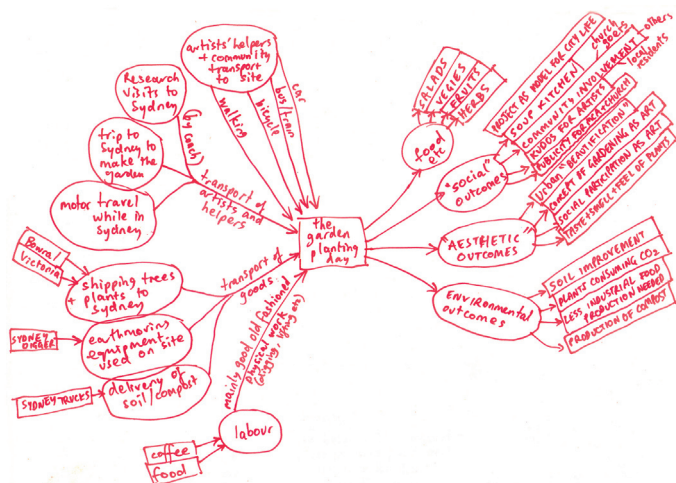 artists' helpers
+ community
transport
to site
walking
bicycle
bus/train
car
Research
visits to
Sydney
(by coach)
trip to
Sydney to
make the
garden
motor travel
while in
Sydney
transport of
artists and
helpers
Bowral
Victoria
shipping trees
+ plants to
Sydney
SYDNEY
DIGGER
earthmoving
equipment
used on site
SYDNEY TRUCKS
delivery of
soil/compost
transport of
goods
coffee
food
labour
mainly good old fashioned
physical work
(digging, lifting etc)
the
garden
planting
day
food
etc
SALADS
VEGIES
FRUITS
HERBS
"social"
outcomes
PROJECT AS MODEL FOR CITY LIFE
SOUP KITCHEN
COMMUNITY INVOLVEMENT
church
goers
others
local
residents
KUDOS FOR ARTISTS
PUBLICITY FOR MCA + CHURCH
"AESTHETIC"
OUTCOMES
Urban "BEAUTIFICATION"
CONCEPT OF GARDENING AS ART
SOCIAL PARTICIPATION AS ART
TASTE + SMELL + FEEL OF PLANTS
ENVIRONMENTAL
outcomes
SOIL IMPROVEMENT
PLANTS CONSUMING CO2
LESS INDUSTRIAL FOOD
PRODUCTION NEEDED
PRODUCTION OF COMPOST